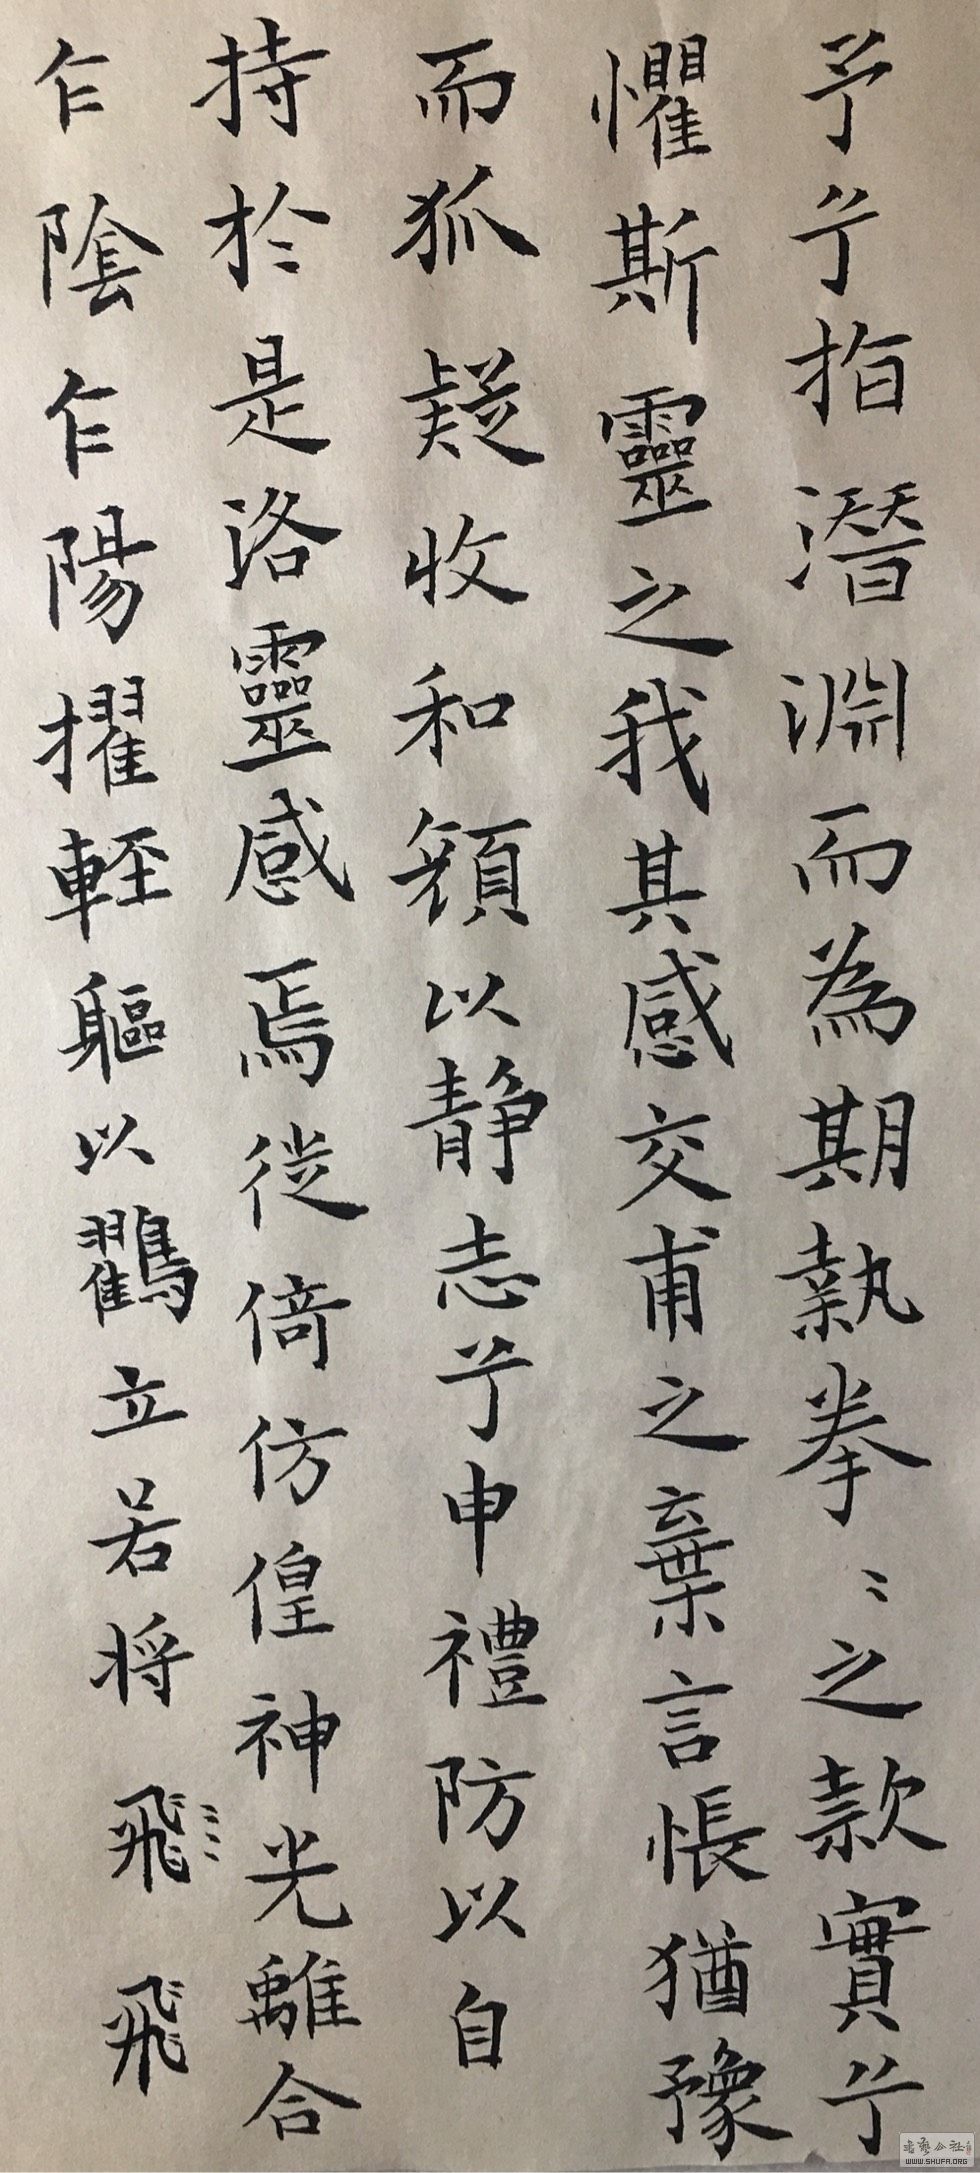 予兮指潛淵而為期執拳〻之款實兮
懼斯靈之我其感交甫之棄言悵猶豫
而狐疑收和顏以靜志兮申禮防以自
持於是洛靈感焉徙倚仿偟神光離合
乍陰乍陽擢輕軀以鶴立若将飛飛
書藝公社
WWW.SHUFA.ORG